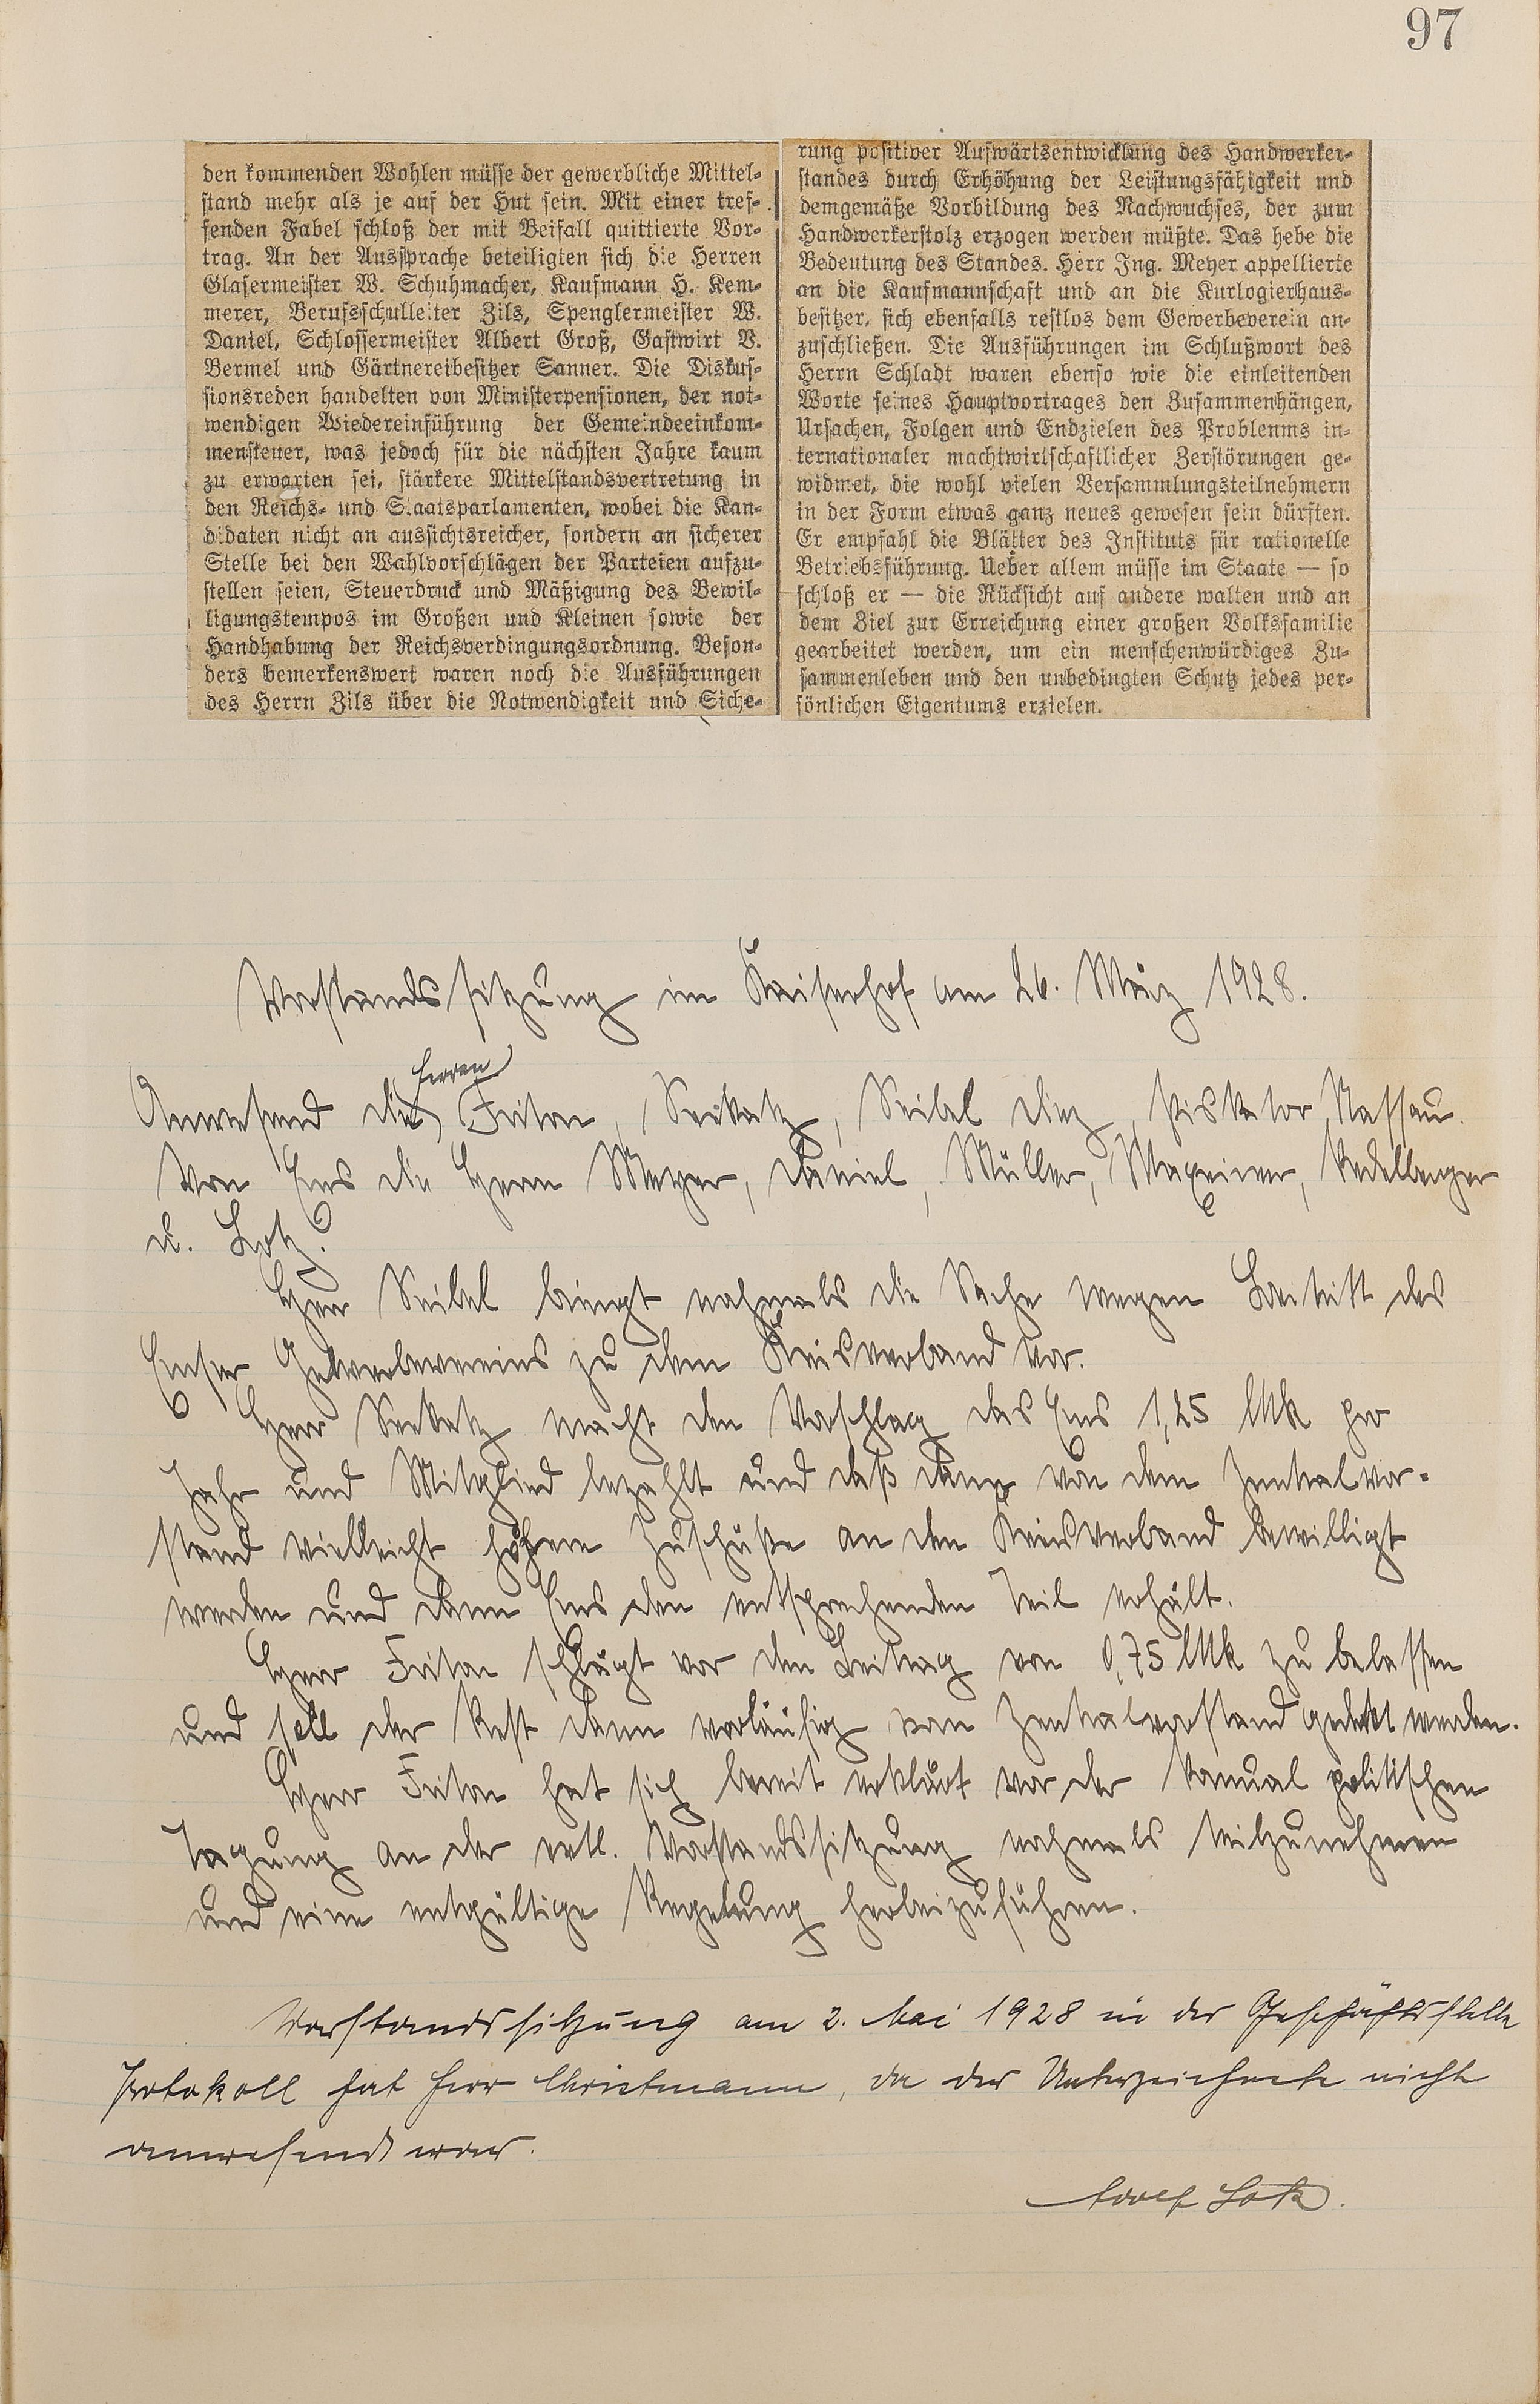 97
den kommenden Wohlen müsse der gewerbliche Mittel-
stand mehr als je auf der Hut sein. Mit einer tref-
fenden Fabel schloß der mit Beifall quittierte Vor-
trag. An der Aussprache beteiligten sich die Herren
Glasermeister W. Schuhmacher, Kaufmann H. Kem-
merer, Berufsschulleiter Zils, Spenglermeister W.
Daniel, Schlossermeister Albert Groß, Gastwirt V.
Bermel und Gärtnereibesitzer Sanner. Die Diskus-
sionsreden handelten von Ministerpensionen, der not-
wendigen Wiedereinführung der Gemeindeeinkom-
mensteuer, was jedoch für die nächsten Jahre kaum
zu erwarten sei, stärkere Mittelstandsvertretung in
den Reichs- und Staatsparlamenten, wobei die Kan-
didaten nicht an aussichtsreicher, sondern an sicherer
Stelle bei den Wahlvorschlägen der Parteien aufzu-
stellen seien, Steuerdruck und Mäßigung des Bewil-
ligungstempos im Großen und Kleinen sowie der
Handhabung der Reichsverdingungsordnung. Beson-
ders bemerkenswert waren noch die Ausführungen
des Herrn Zils über die Notwendigkeit und Siche-
rung positiver Aufwärtsentwicklung des Handwerker-
standes durch Erhöhung der Leistungsfähigkeit und
demgemäße Vorbildung des Nachwuchses, der zum
Handwerkerstolz erzogen werden müßte. Das hebe die
Bedeutung des Standes. Herr Ing. Meyer appellierte
an die Kaufmannschaft und an die Kurlogierhaus-
besitzer, sich ebenfalls restlos dem Gewerbeverein an-
zuschließen. Die Ausführungen im Schlußwort des
Herrn Schladt waren ebenso wie die einleitenden
Worte seines Hauptvortrages den Zusammenhängen,
Ursachen, Folgen und Endzielen des Problenms in-
ternationaler machtwirtschaftlicher Zerstörungen ge-
widmet, die wohl vielen Versammlungsteilnehmern
in der Form etwas ganz neues gewesen sein dürften.
Er empfahl die Blätter des Instituts für rationelle
Betriebsführung. Ueber allem müsse im Staate — so
schloß er — die Rücksicht auf andere walten und an
dem Ziel zur Erreichung einer großen Volksfamilie
gearbeitet werden, um ein menschenwürdiges Zu-
sammenleben und den unbedingten Schutz jedes per-
sönlichen Eigentums erzielen.
Vorstandssitzung im Kaiserhof am 26. März 1928.
Herren
Anwesend die Friton, Seekatz, Seibel Diez, Piskator Nassau.
Von Ems die Herrn Meyer, Daniel, Müller, Maxeiner,
u. Lotz.
Herr Seibel bringt nochmals die Sache wegen Beitritt des
Emser Gewerbevereins zu dem Kreisverband vor.
Herr Seekatz macht den Vorschlag das Ems 1,25 Mk pro
Jahr und Mitglied bezahlt und daß dann von dem Zentralvor-
stand vielleicht höhere Zuschüße an den Kreisverband bewilligt
werden und dann Ems den entsprechenden Teil erhält.
Herr Friton schlägt vor den Beitrag von 0,75 Mk zu belassen
und soll der Rest dann vorläufig vom Zentralvorstand gedekt werden.
Herr Friton hat sich bereit erklärt vor der Komual politischen
Tagung an der evtl. Vorstandssitzung nochmals teilzunehmen
und eine entgültige Regelung herbeizuführen.
Vorstandssitzung am 2. Mai 1928 in der Geschäftsstelle
Protokoll hat Herr Christmann, da der Unterzeichnete nicht
anwesend war.
Adolf Lotz.